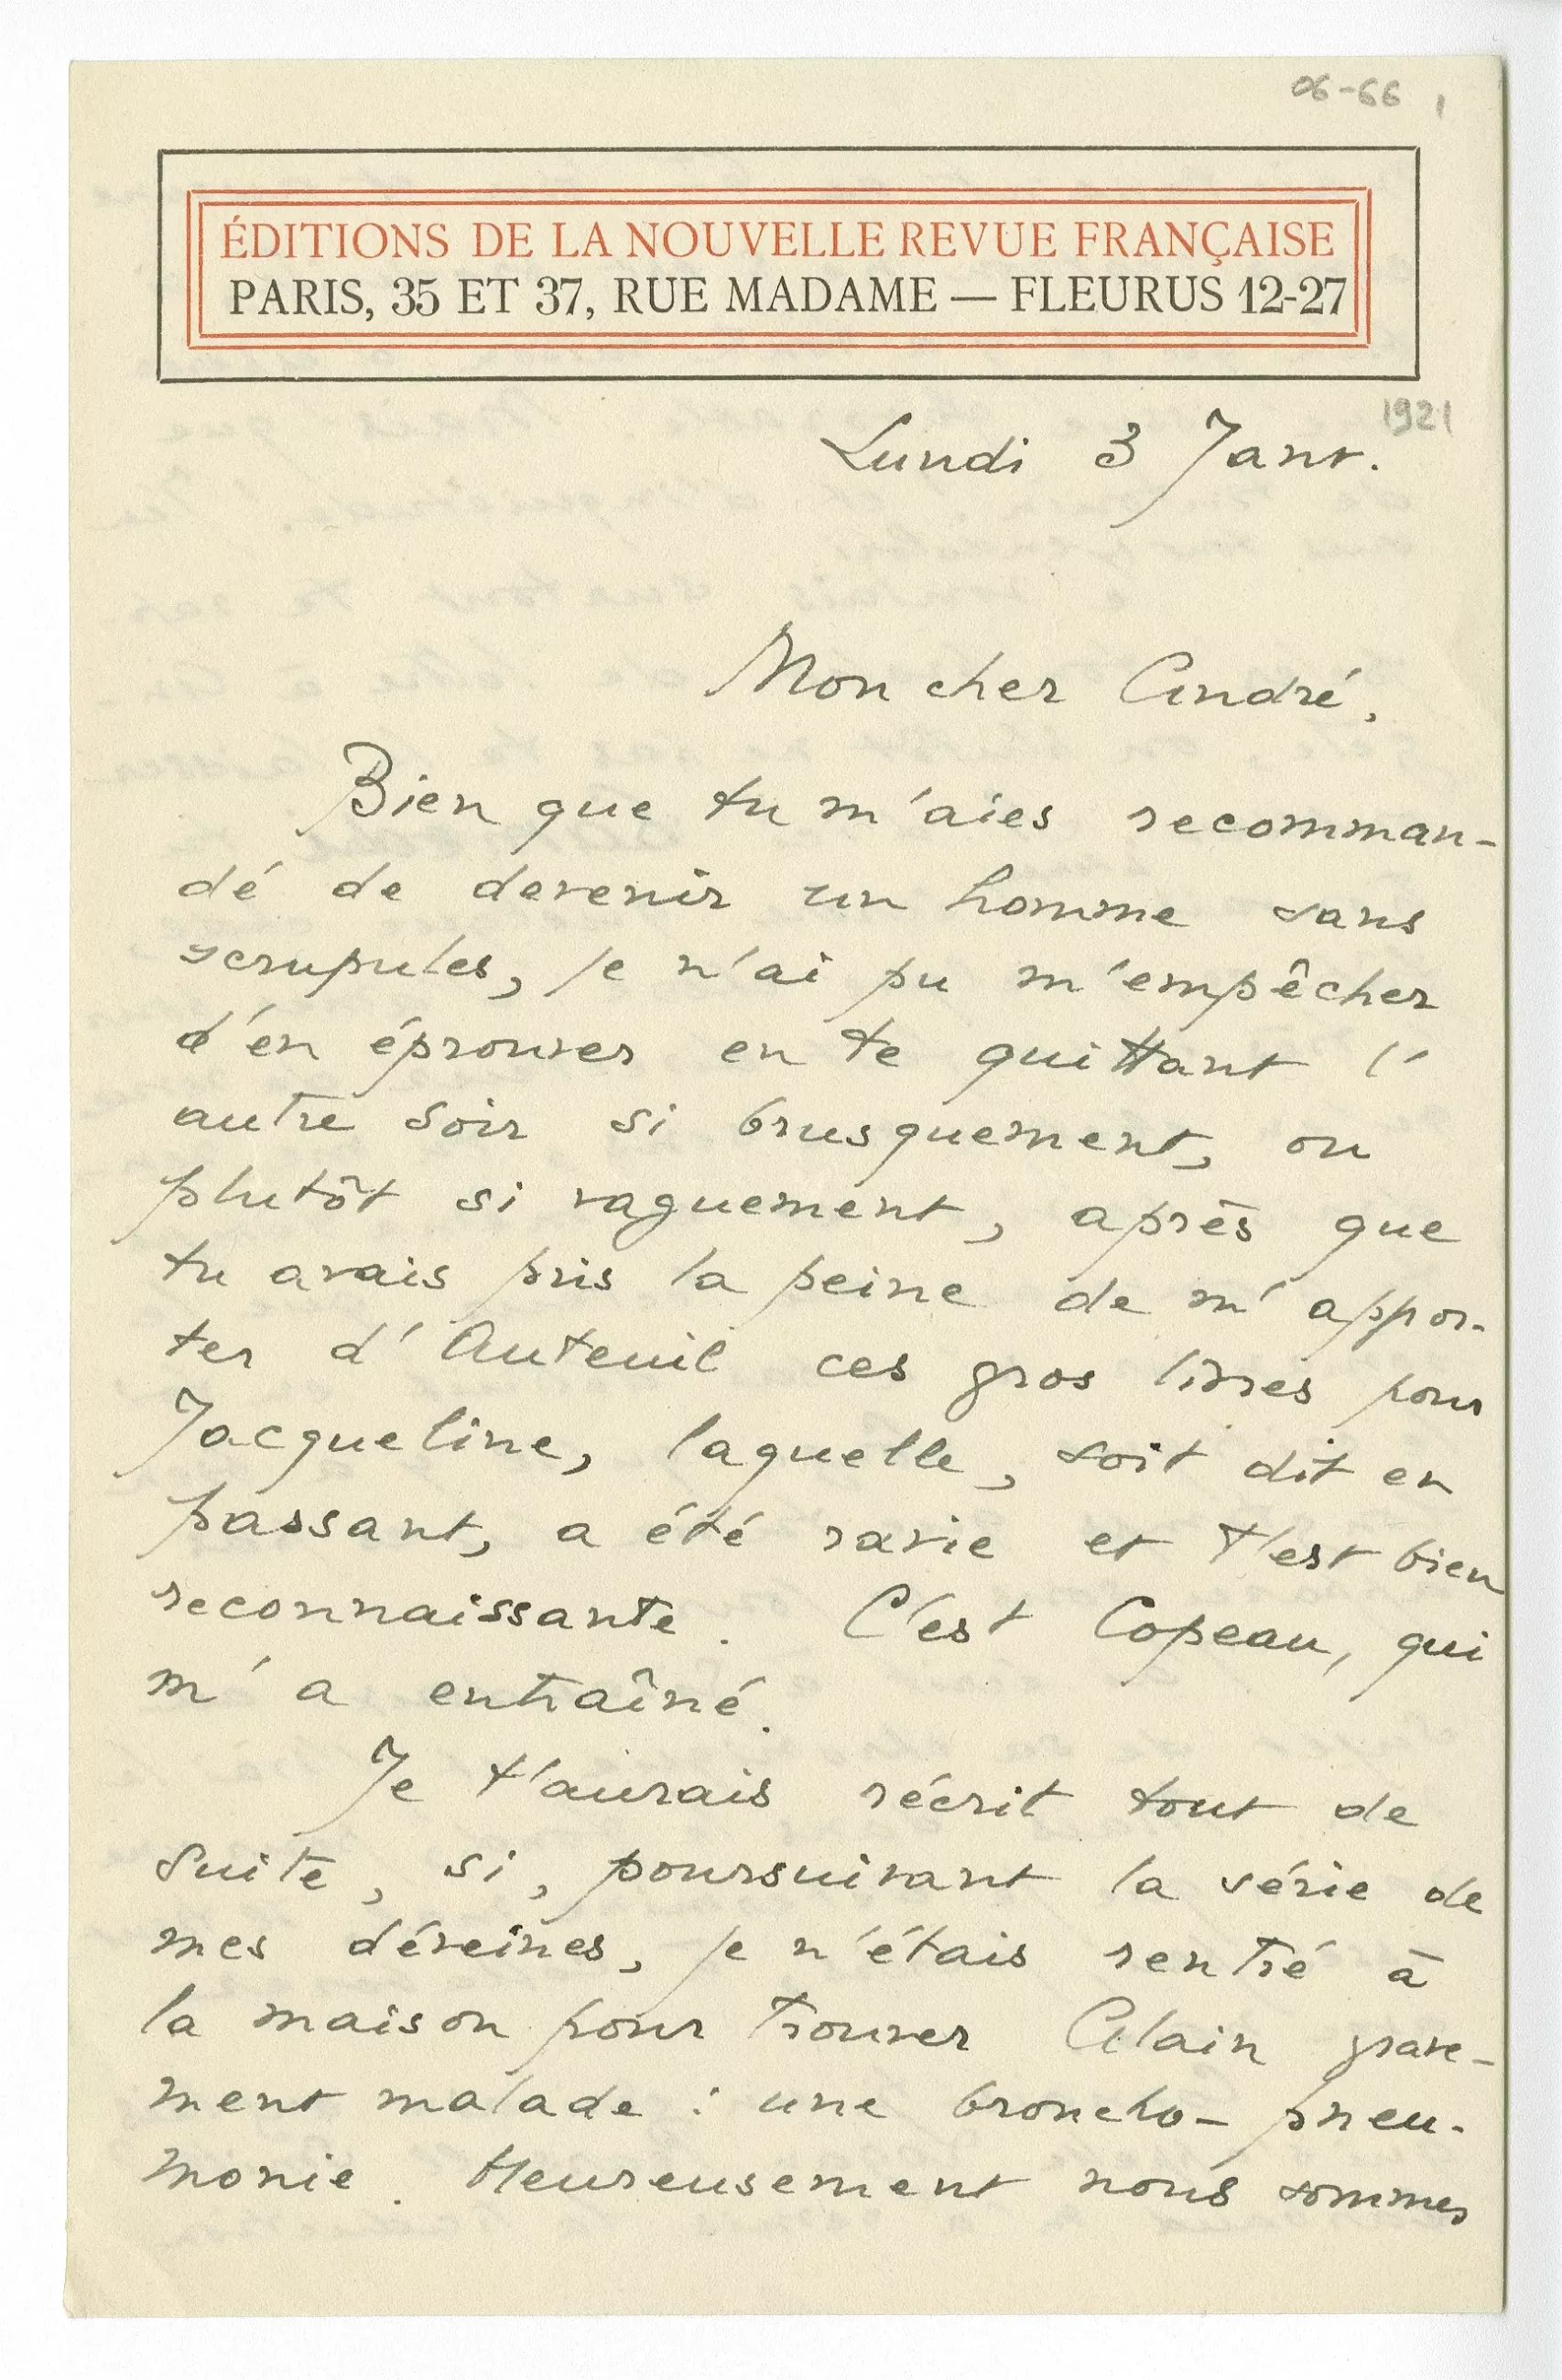 06-66 1
ÉDITIONS DE LA NOUVELLE REVUE FRANÇAISE
PARIS, 35 ET 37, RUE MADAME — FLEURUS 12-27
1921
Lundi 3 Janv.
Mon cher André,
Bien que tu m'aies recomman-
dé de devenir un homme sans
scrupules, je n'ai pu m'empêcher
d'en éprouver en te quittant l'
autre soir si brusquement, ou
plutôt si vaguement, après que
tu avais pris la peine de m'appor-
ter d'Auteuil ces gros livres pour
Jacqueline, laquelle, soit dit en
passant, a été ravie et t'est bien
reconnaissante. C'est Copeau, qui
m'a entraîné.
Je t'aurais récrit tout de
suite, si, poursuivant la série de
mes déveines, je n'étais rentré à
la maison pour trouver Alain grave-
ment malade : une broncho-pneu-
monie. Heureusement nous sommes